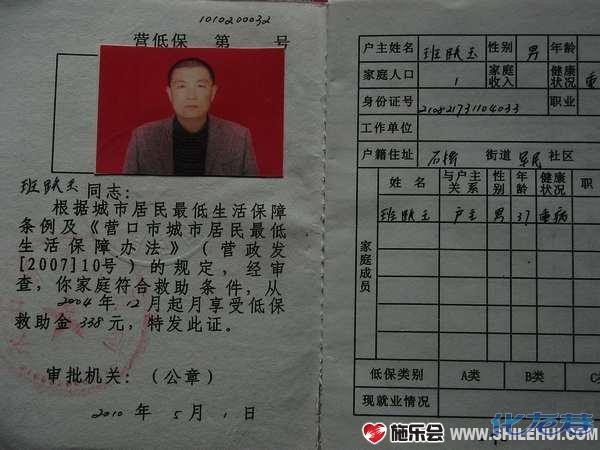 1010200032
营低保 第 号
班跃玉同志：
根据城市居民最低生活保障
条例及《营口市城市居民最低
生活保障办法》（营政发
[2007]10号）的规定，经审
查，你家庭符合救助条件，从
2004年12月起月享受低保
救助金338元，特发此证。
审批机关：（公章）
2010年5月1日
户主姓名 班跃玉 性别 男 年龄
家庭人口 1 家庭收入 健康状况 重
身份证号 210821731104033 职业
工作单位
户籍住址 石桥 街道 军民 社区
家庭成员
姓名 与户主关系 性别 年龄 健康状况 职
班跃玉 户主 男 37 重病
低保类别 A类 B类 C
现就业情况
施乐会 WWW.SHILEHUI.COM
化龙巷